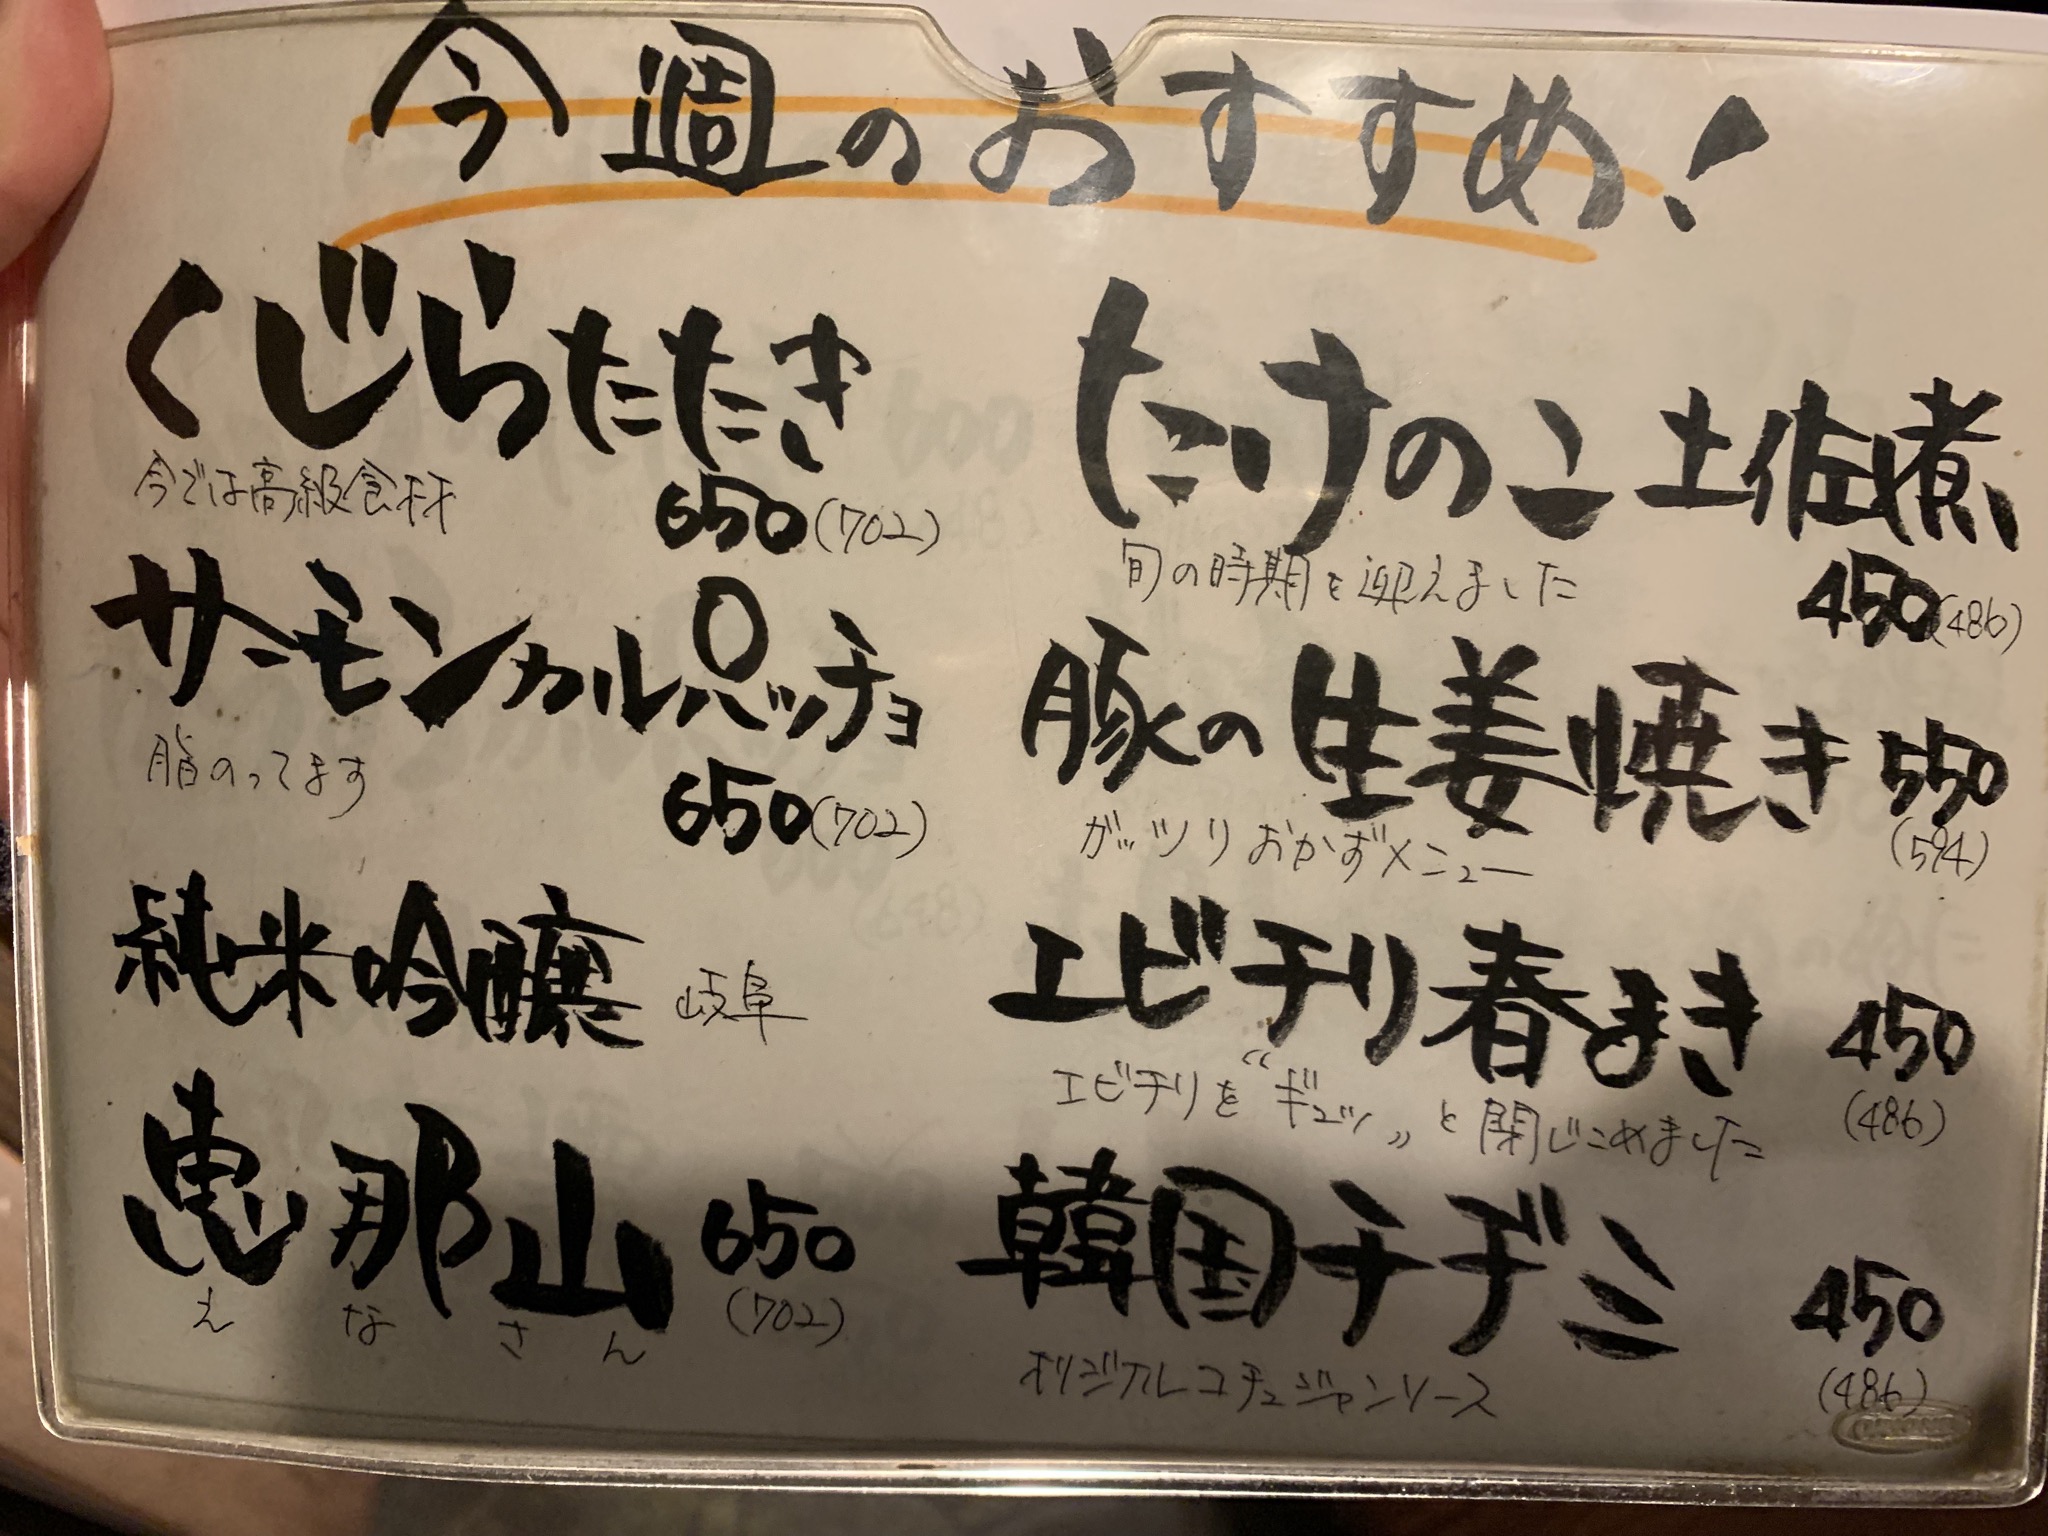 今週のおすすめ!
くじらたたき
今では高級食材
650(702)
サーモンカルパッチョ
脂のってます
650(702)
純米吟醸 岐阜
恵那山 650
えなさん (702)
たけのこ土佐煮
旬の時期を迎えました
450(486)
豚の生姜焼き 550
ガッツリおかずメニュー (594)
エビチリ春まき 450
エビチリを“ギュッ”と閉じこめました (486)
韓国チヂミ 450
オリジナルコチュジャンソース (486)